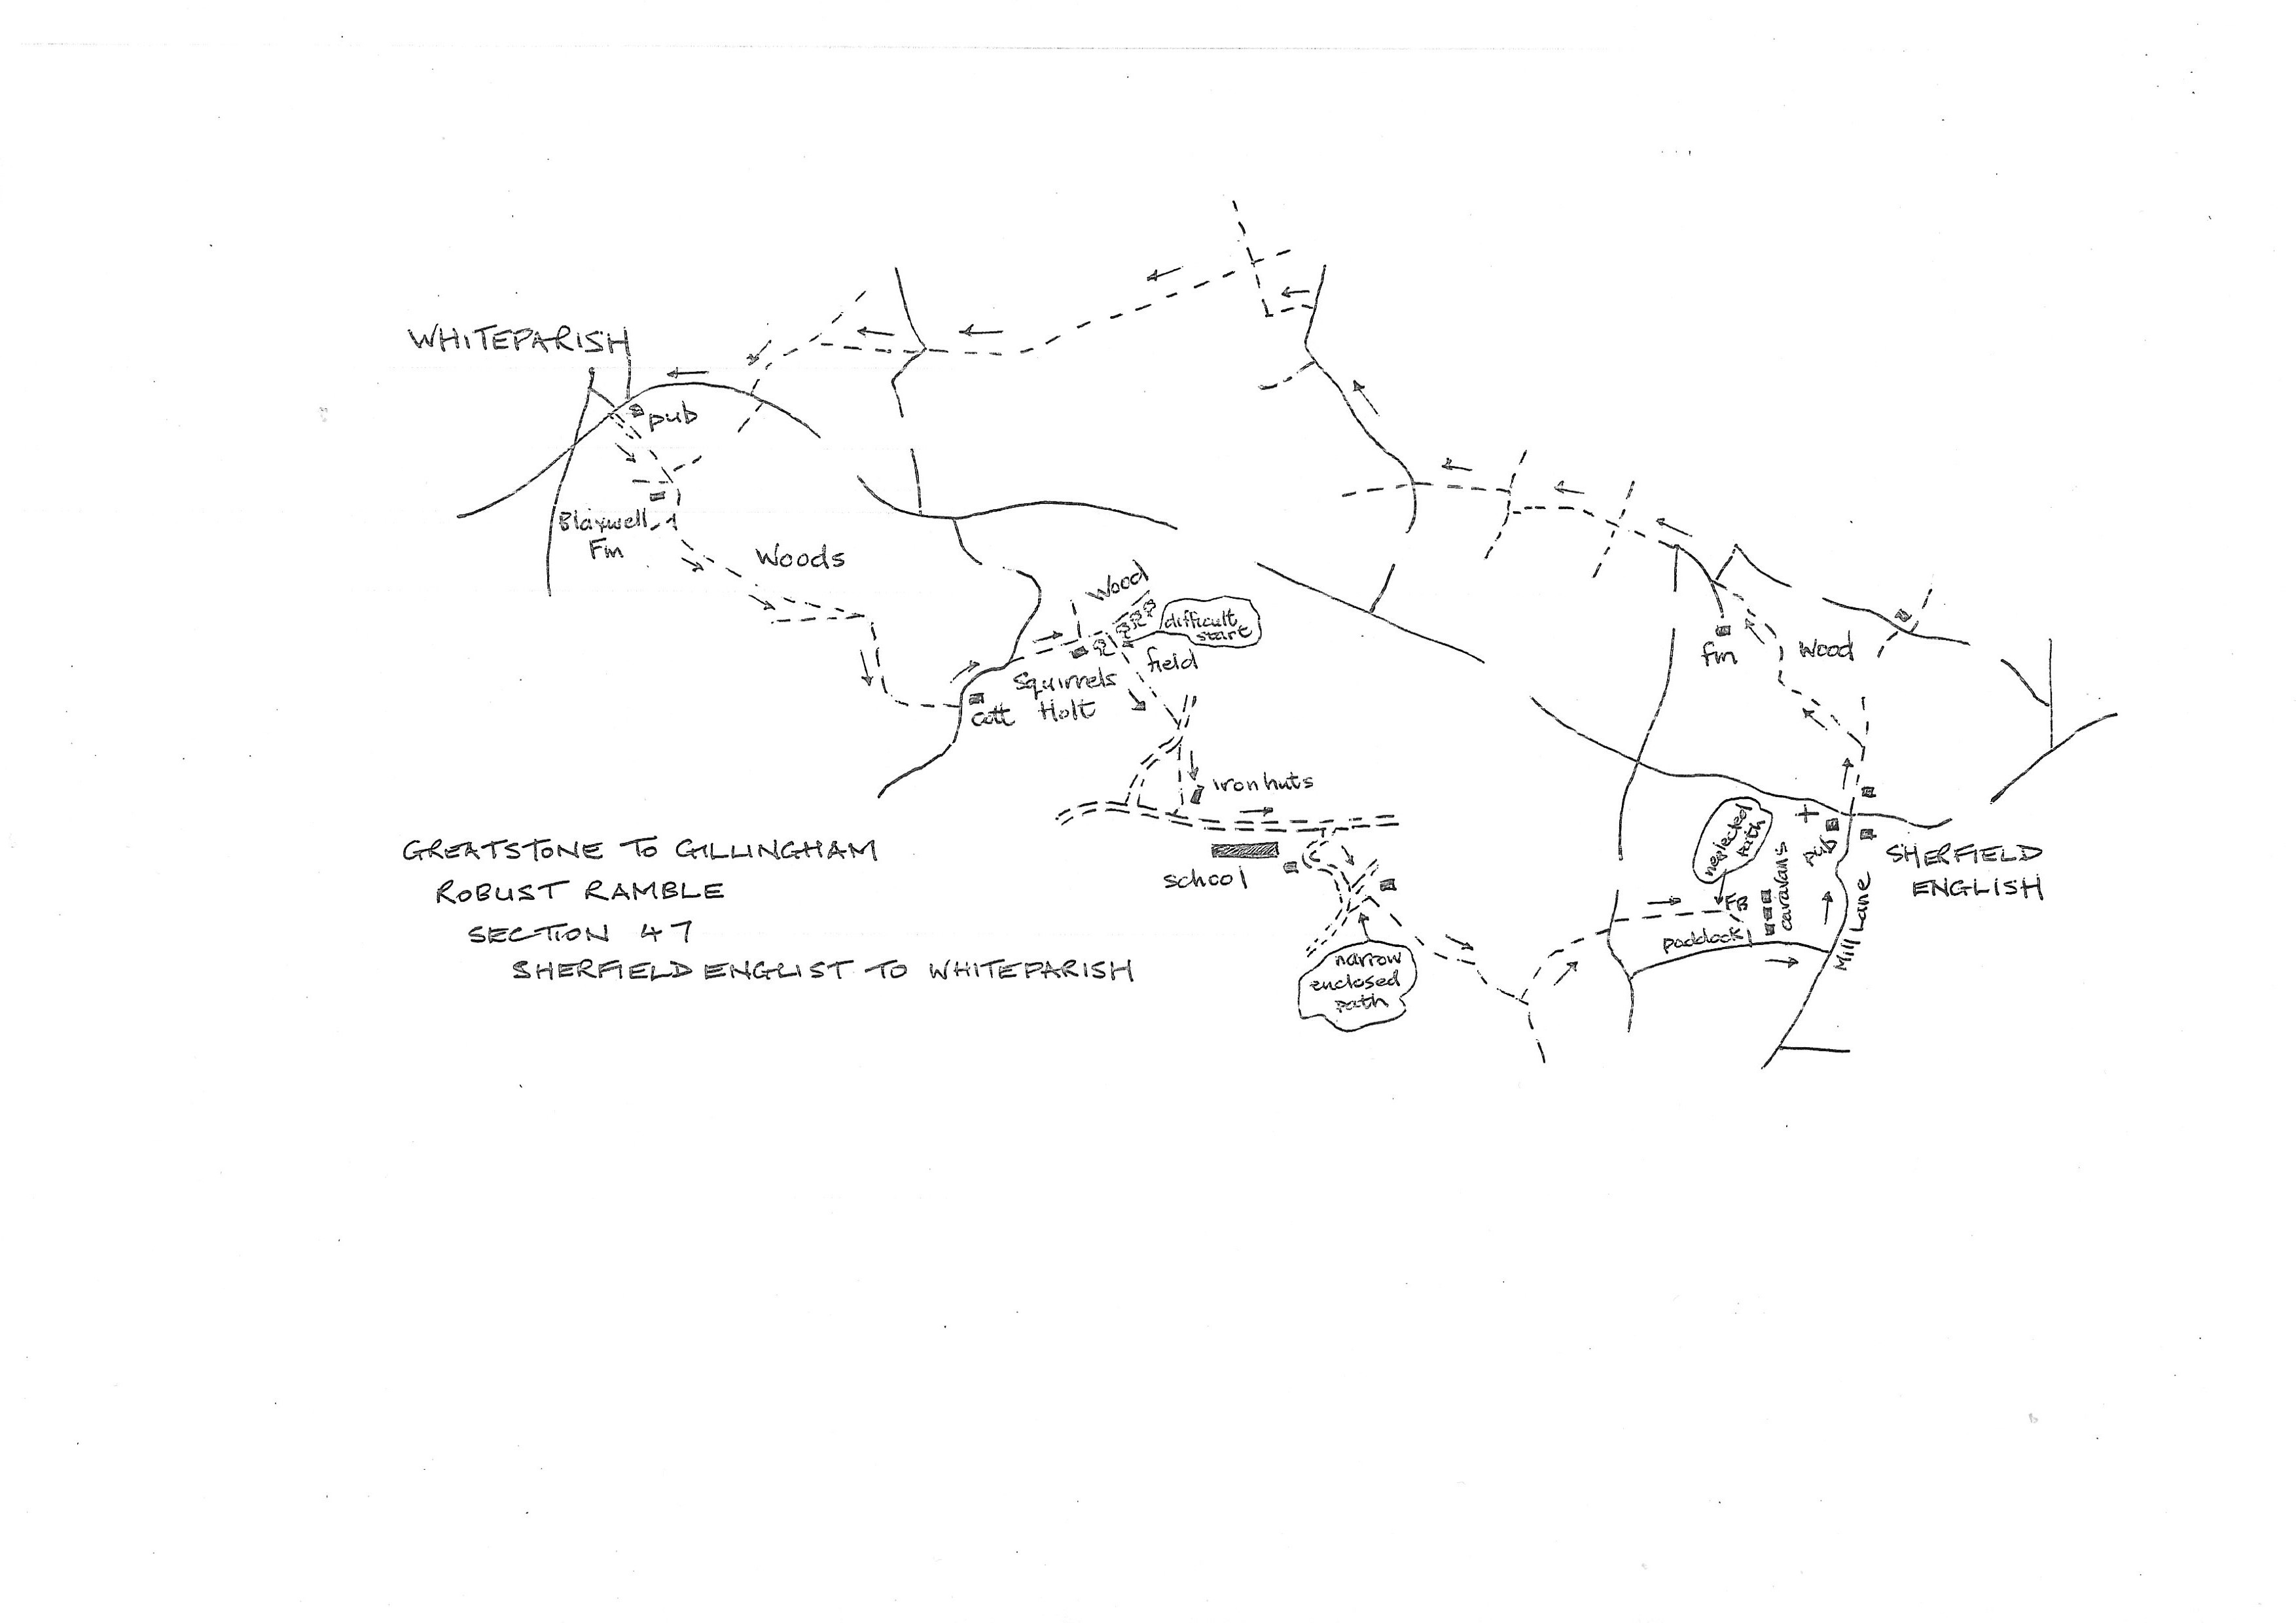 WHITEPARISH
pub
Blaxwell
Fm
Woods
Wood
difficult
start
field
Squirrels
Holt
Cott
iron huts
school
narrow
enclosed
path
fm
Wood
neglected
path
FB
caravans
paddock
pub
Mill Lane
SHERFIELD
ENGLISH
GREATSTONE TO GILLINGHAM
ROBUST RAMBLE
SECTION 47
SHERFIELD ENGLIST TO WHITEPARISH